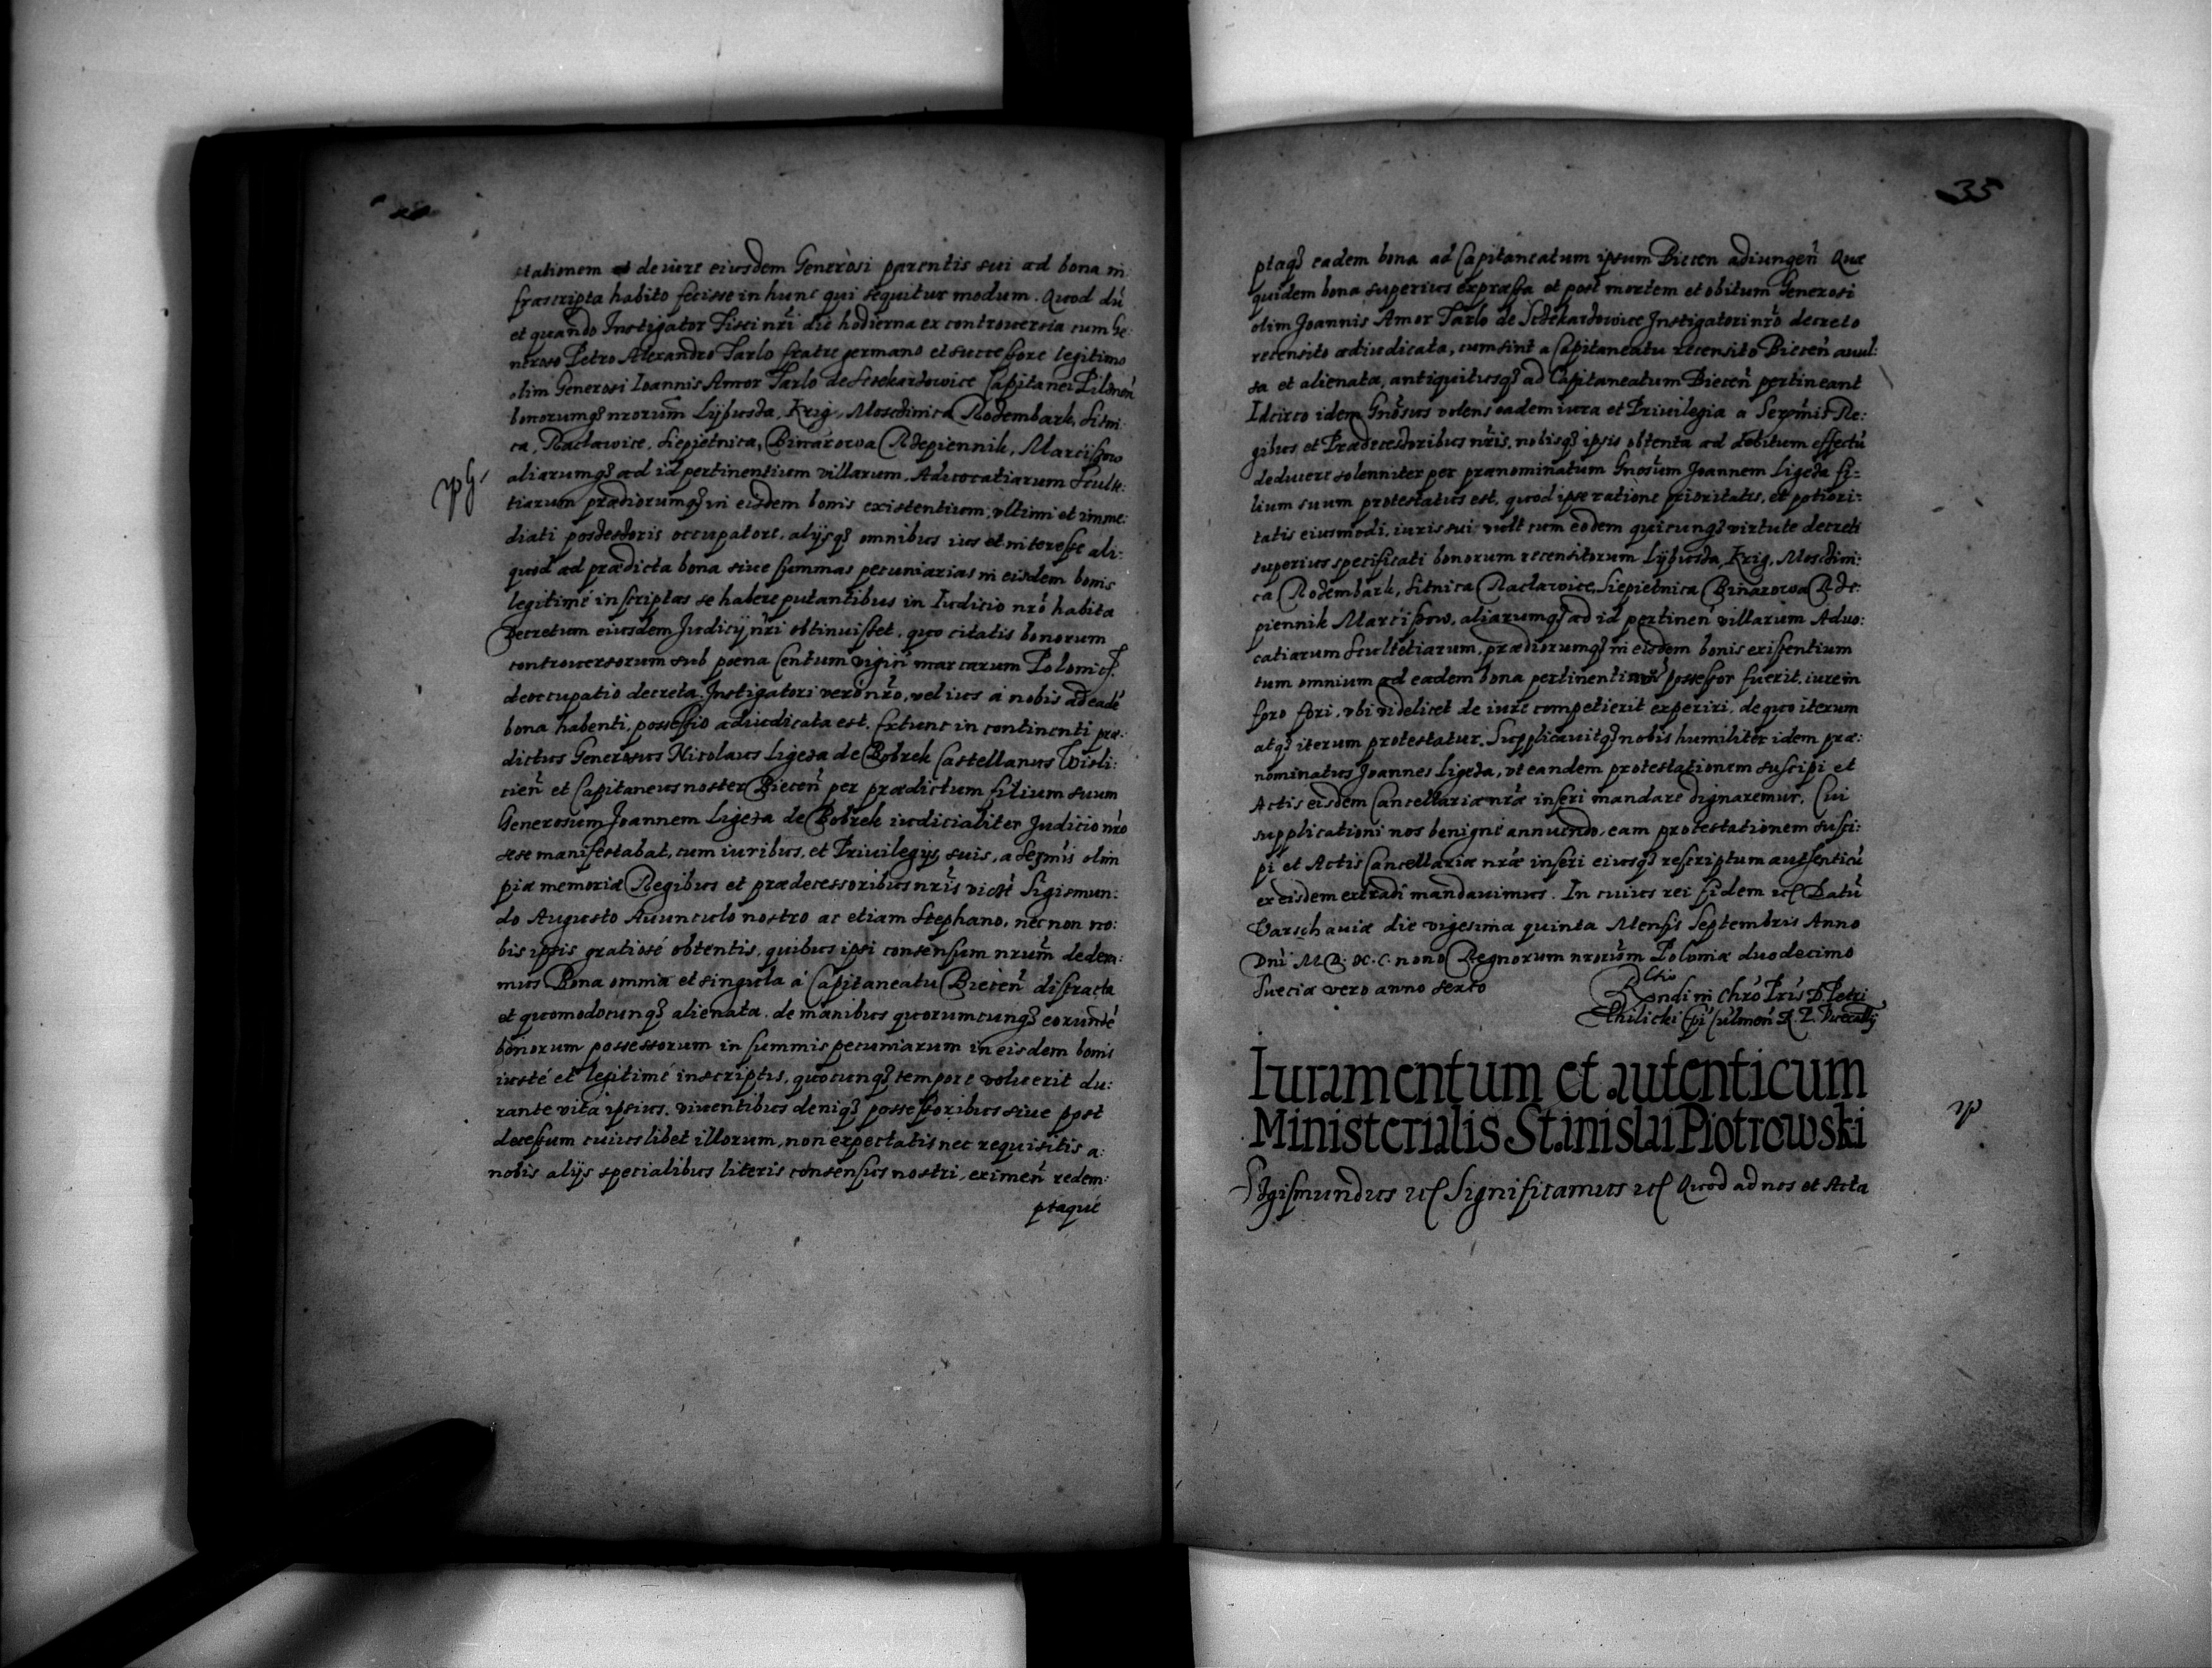 stationem de iure eiusdem Generosi parentis sui ad bona in
frascripta habito fecisse in hunc qui sequitur modum. Quod dũ
et quando Instigator Fisci nr̃i die hodierna ex controuersia cum Ge:
neroso Petro Alexandro Tarlo fratre germano et successore legitimo
olim Generosi Ioannis Amor Tarlo de Sczekarzowice Capitanei Pilznen̄
bonorumq̃ nrorum̃ Lijbusza, Krig, Mosczinica Rozembark, Sitni
ca, Racławice, Siepietnica, Binarowa Rzepiennik, Marciszow
aliarumq̃ ad id pertinentium villarum, Aduocatiarum Scult:
tiarum prædiorumq̃ in eisdem bonis existentium, vltimi et imme:
diati possessoris occupatore, alijsq̃ omnibus ius et interesse ali:
quod ad prædicta bona siue summas pecuniarias in eisdem bonis
legitimé inscriptas se habere putantibus in Iudicio nrõ habita
Decretum eiusdem Judicij nr̃i obtinuisset, quo citatis bonorum
controuersorum sub pœna Centum viginti marcarum Polonic
deoccupatio decreta. Instigatori vero nrõ, vel ius a nobis ad eadẽ
bona habenti, possessio adiudicata est. Extunc in continenti præ:
dictus Generosus Nicolaus Ligeza de Bobrek Castellanus Wisli:
cien̄ et Capitaneus noster Biecen̄ per prædictum filium suum
Generosum Joannem Ligeza de Bobrek iudicialiter Judicio nrõ
sese manifestabat, cum iuribus, et Priuilegijs suis, a Sermis̃ olim
piæ memoriæ Regibus et prædecessoribus nrĩs Sigismun:
do Augusto Auunculo nostro ac etiam Stephano, nec non no:
bis ipsis gratiosé obtentis, quibus ipsi consensum nrum̃ dedera:
mus Bona omnia et singula á Capitaneatu Biecen̄ distracta
et quomodocunq̃ alienata, de manibus quorumcunq̃ eorundẽ
bonorum possessorum in summis pecuniarum in eisdem bonis
iusté et legitimé inscriptis, quocunq̃ tempore voluerit du:
rante vita ipsius, viuentibus deniq̃ possessoribus siue post
decessum cuiuslibet illorum, non expectatis nec requisitis a:
nobis alijs specialibus literis consensus nostri, eximen̄ redem:
ptaqué
35
ptaq̃ eadem bona ad Capitaneatum ipsum Biecen adiungen̄ Quæ
quidem bona superius expressa et post mortem et obitum Generosi
olim Joannis Amor Tarlo de Sczekarzowice Instigatori nrõ decreto
recensito adiudicata, cum sint a Capitaneatu recensito Biecen̄ auul:
sa et alienata, antiquitusq̃ ad Capitaneatum Biecen̄ pertineant
Idcirco idem Gnõsus volens eadem iura et Priuilegia a Sermis̃ Re:
gibus et Prædecessoribus nrĩs, nobisq̃ ipsis obtenta ad debitum effectũ
deducere solenniter per prænominatum Gnosum̃ Joannem Ligeza fi=
lium suum protestatus est, quod ipse ratione prioritatis, et potiori=
tatis eiusmodi, iuris sui vult cum eodem quicunq̃ virtute decreti
superius specificati bonorum recensitorum Lijbusza, Krig, Mosczini:
ca Rozembark, Sitnica Racławice, Siepietnica Binarowa Rze:
piennik Marciszow, aliarumq̃ ad id pertinen̄ villarum Aduo:
catiarum Scultetiarum, prædiorumq̃ in eisdem bonis existentium
tum omnium ad eadem bona pertinentium possessor fuerit, iure in
foro fori, vbi videlicet de iure competierit experiri, de quo iterum
atq̃ iterum protestatur. Supplicauitq̃ nobis humiliter idem præ:
nominatus Joannes Ligeza, vt eandem protestationem suscipi et
Actis eisdem Cancellariæ nrã inseri mandare dignaremur. Cui
supplicationi nos benigné annuendo, eam protestationem susci:
pi et Actis Cancellariæ nrã inseri eiusq̃ rescriptum autenticũ
ex eisdem extradi mandauimus. In cuius rei fidem etc Datũ
Varschauiæ die vigesima quinta Mensis Septembris Anno
Dnĩ M. D. XC. nono Regnorum nrorum̃ Poloniæ duodecimo
Sueciæ vero anno sexto
Rndi in Chrõ Prĩs D. Petri
Thilicki Epĩ Culmen̄ R. P. Vicecancellarij
Iuramentum et autenticum
Ministerialis Stanislai Piotrowski
Sigismundus etc Significamus etc Quod ad nos et Acta